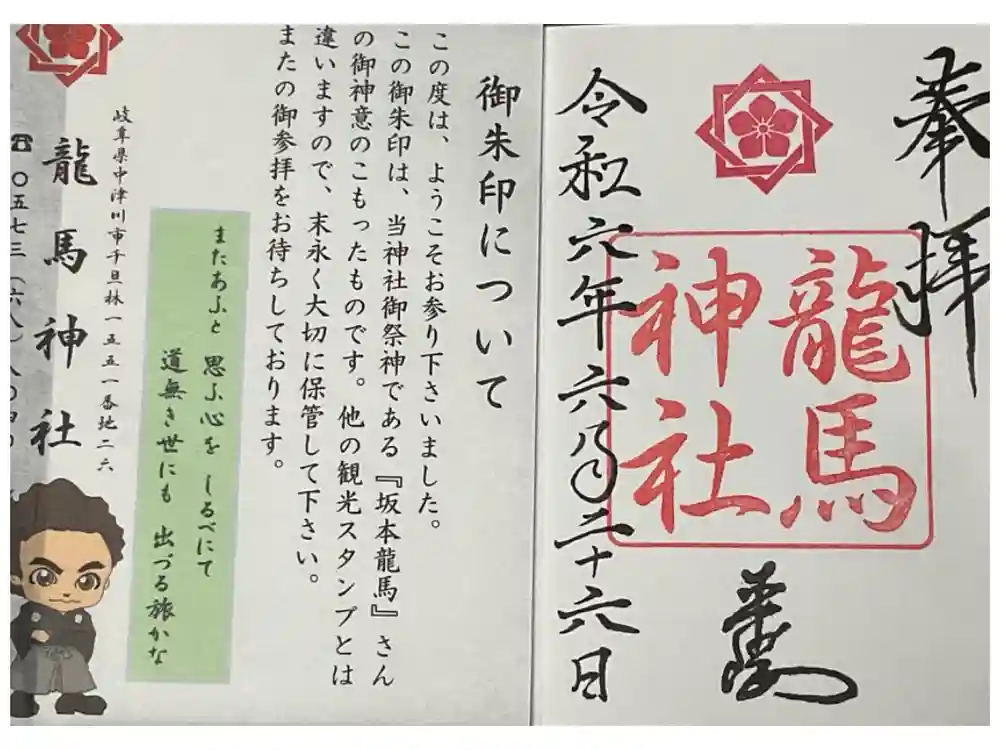 奉拝
龍馬
神社
令和六年六月二十六日
御朱印について
この度は、ようこそお参り下さいました。
この御朱印は、当神社御祭神である『坂本龍馬』さん
の御神意のこもったものです。他の観光スタンプとは
違いますので、末永く大切に保管して下さい。
またの御参拝をお待ちしております。
またあふと 思ふ心を しるべにて
道無き世にも 出づる旅かな
岐阜県中津川市千旦林一五五一番地二六
龍馬神社
☎〇五七三(六八)